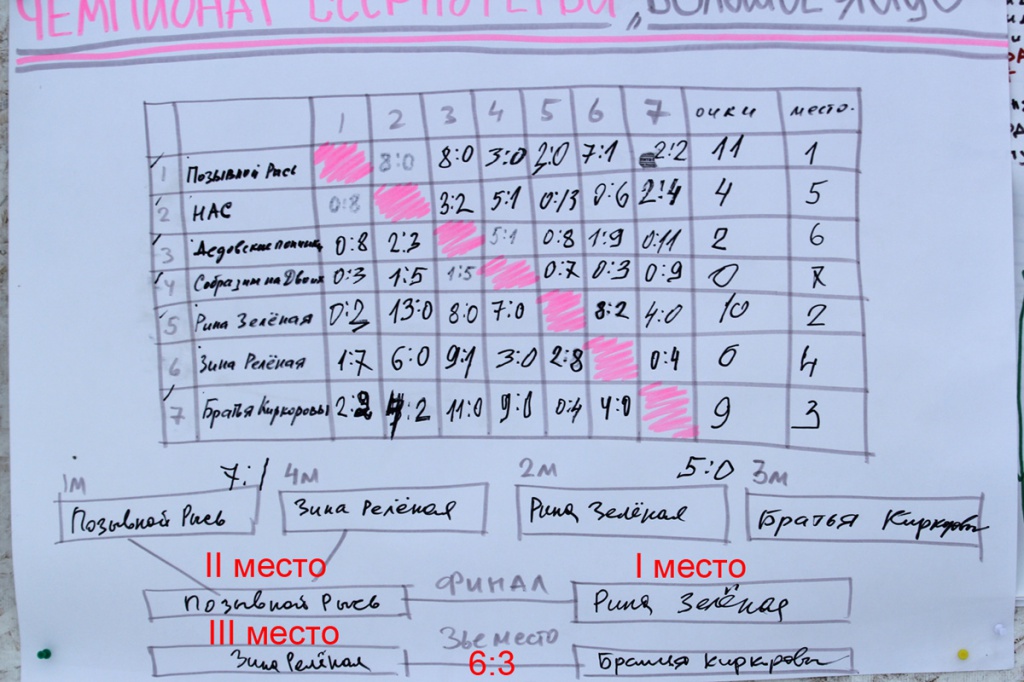 ЧЕМПИОНАТ „БОЛЬШОЕ
1 2 3 4 5 6 7 очки место.
1 Позывной Рысь 8:0 8:0 3:0 2:0 7:1 2:2 11 1
2 НАС 0:8 3:2 5:1 0:13 0:6 2:4 4 5
3 Дедовские пончики 0:8 2:3 5:1 0:8 1:9 0:11 2 6
4 Собразим на Двоих 0:3 1:5 1:5 0:7 0:3 0:9 0 7
5 Рина Зелёная 0:2 13:0 8:0 7:0 8:2 4:0 10 2
6 Зина Релёная 1:7 6:0 9:1 3:0 2:8 0:4 6 4
7 Братья Киркоровы 2:2 4:2 11:0 9:0 0:4 4:0 9 3
1м 7:1 4м 2м 5:0 3м
Позывной Рысь Зина Релёная Рина Зелёная Братья Киркоровы
II место I место
Позывной Рысь ФИНАЛ Рина Зелёная
III место 3ье место
Зина Релёная 6:3 Братья Киркоровы